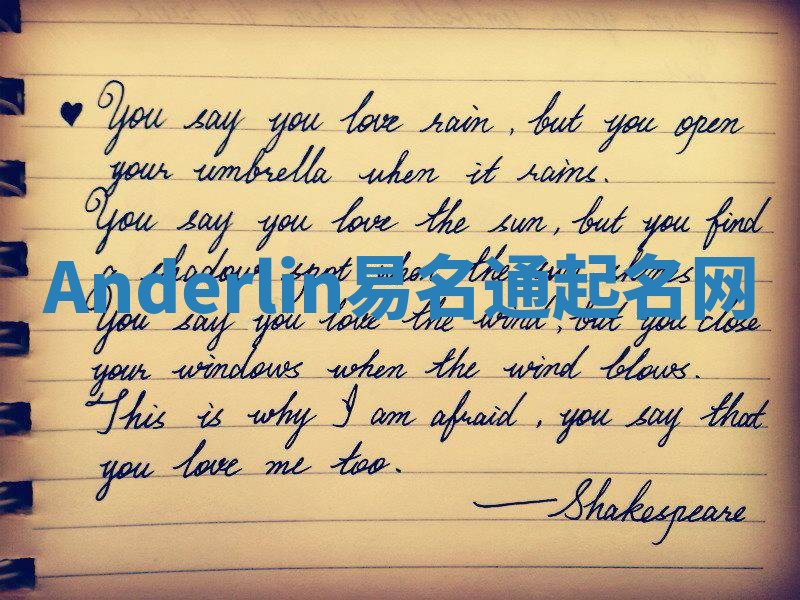 ♥ You say you love rain, but you open
your umbrella when it rains.
You say you love the sun, but you find
a shadow spot when the sun shines
Anderlin易名通起名网
You say you love the wind, but you close
your windows when the wind blows.
This is why I am afraid, you say that
you love me too.
—Shakespeare